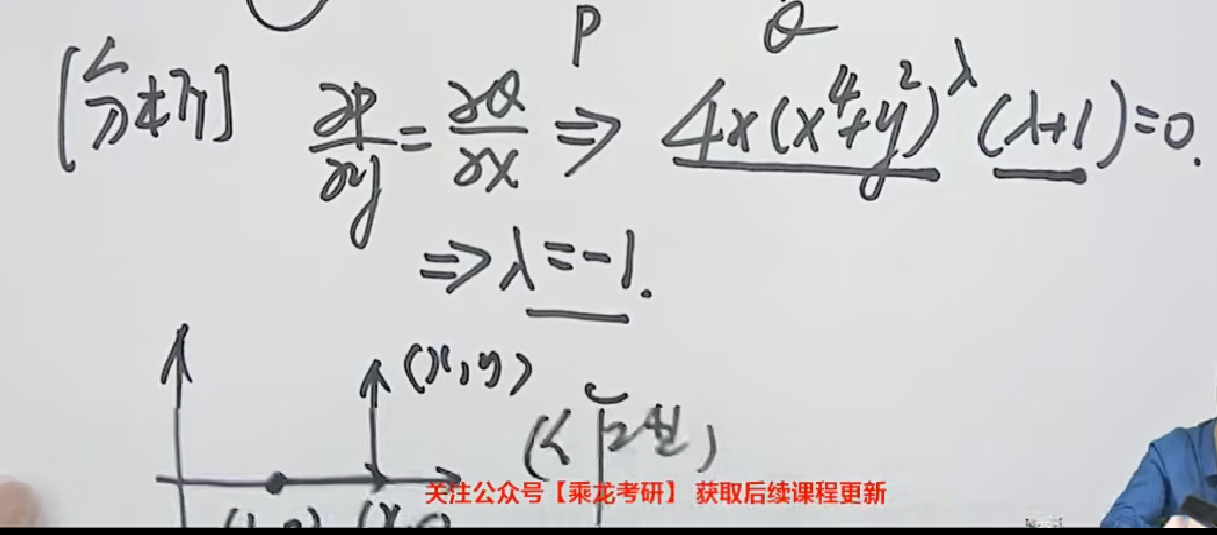 P Q
[分析] ∂P/∂y = ∂Q/∂x ⇒ 4x(x⁴+y²)^λ (λ+1)=0.
⇒ λ=-1.
(x,y)
关注公众号【乘龙考研】 获取后续课程更新